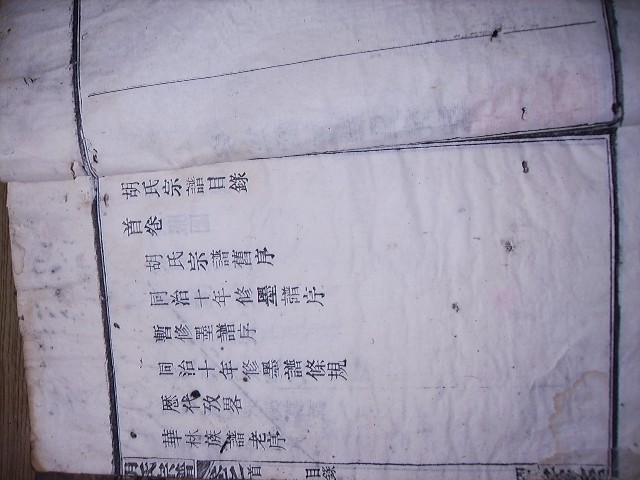 胡氏宗譜目錄
首卷
胡氏宗譜舊序
同治十年修墨譜序
暫修墨譜序
同治十年修墨譜條規
歷代攷畧
華林族譜老序
胡氏宗譜
首
目錄